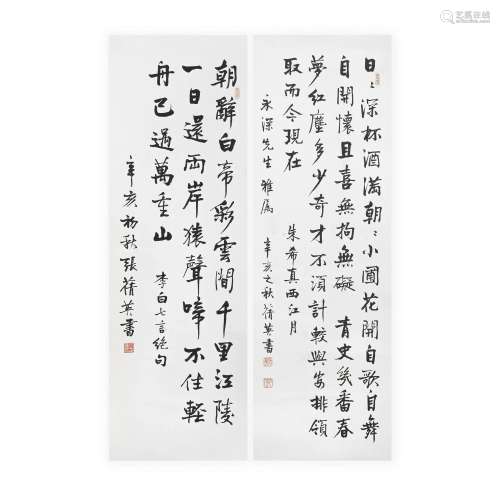 日日深杯酒滿朝朝小圃花開自歌自舞
自開懷且喜無拘無礙 青史幾番春
夢紅塵多少奇才不須計較與安排領
取而今現在 朱希真西江月
永深先生雅屬 辛亥之秋蒨英書
朝辭白帝彩雲間千里江陵
一日還兩岸猿聲啼不住輕
舟已過萬重山 李白七言絕句
辛亥初秋張蒨英書